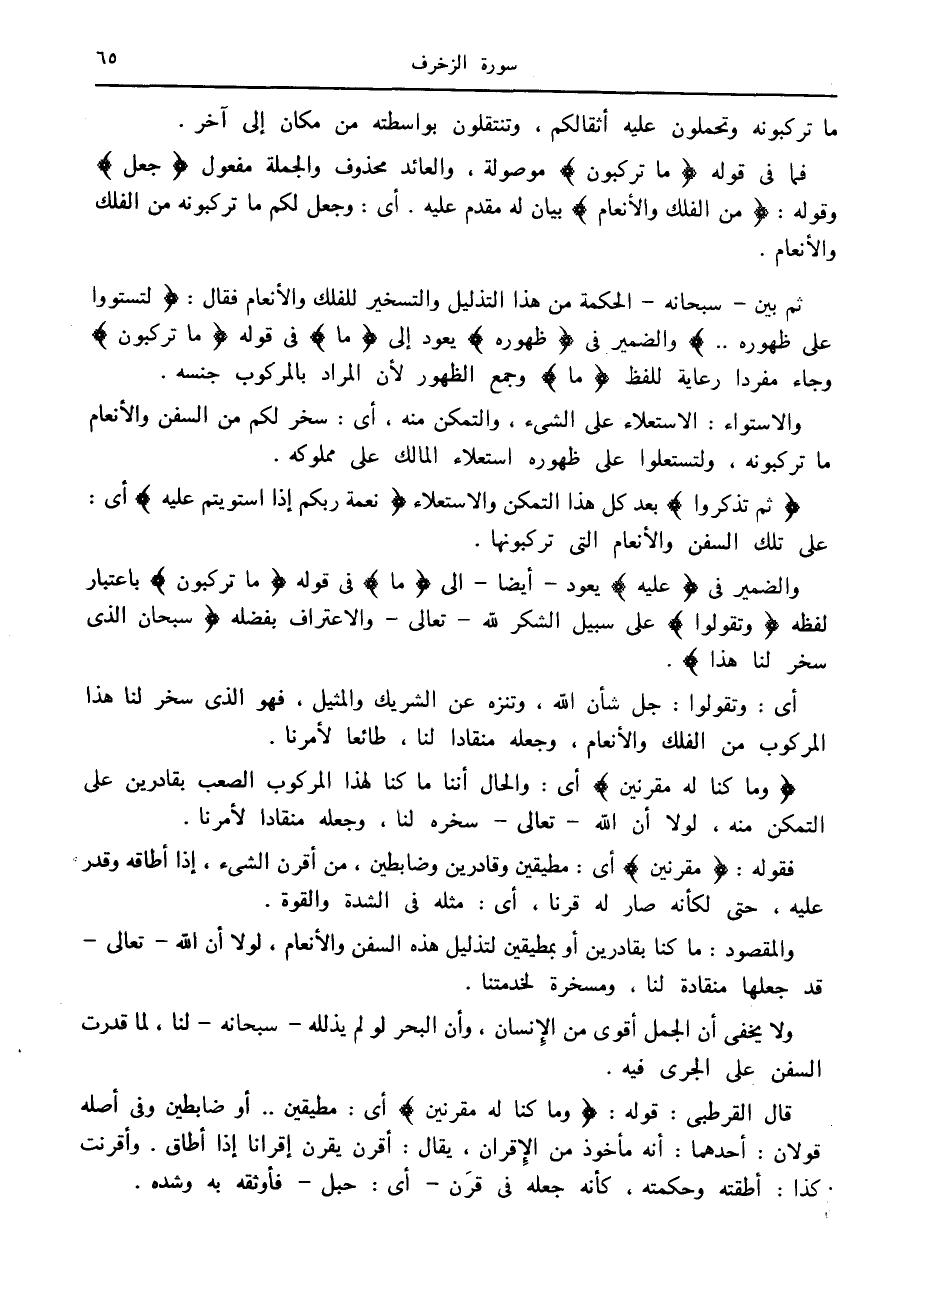 سورة الزخرف
٦٥
ما تركبونه وتحملون عليه أثقالكم ، وتنتقلون بواسطته من مكان إلى آخر .
فما فى قوله ﴿ ما تركبون ﴾ موصولة ، والعائد محذوف والجملة مفعول ﴿ جعل ﴾
وقوله : ﴿ من الفلك والأنعام ﴾ بيان له مقدم عليه . أى : وجعل لكم ما تركبونه من الفلك
والأنعام .
ثم بين – سبحانه – الحكمة من هذا التذليل والتسخير للفلك والأنعام فقال : ﴿ لتستووا
على ظهوره .. ﴾ والضمير فى ﴿ ظهوره ﴾ يعود إلى ﴿ ما ﴾ فى قوله ﴿ ما تركبون ﴾
وجاء مفردا رعاية للفظ ﴿ ما ﴾ وجمع الظهور لأن المراد بالمركوب جنسه .
والاستواء : الاستعلاء على الشىء ، والتمكن منه ، أى : سخر لكم من السفن والأنعام
ما تركبونه ، ولتستعلوا على ظهوره استعلاء المالك على مملوكه .
﴿ ثم تذكروا ﴾ بعد كل هذا التمكن والاستعلاء ﴿ نعمة ربكم إذا استويتم عليه ﴾ أى :
على تلك السفن والأنعام التى تركبونها .
والضمير فى ﴿ عليه ﴾ يعود – أيضا – الى ﴿ ما ﴾ فى قوله ﴿ ما تركبون ﴾ باعتبار
لفظه ﴿ وتقولوا ﴾ على سبيل الشكر لله – تعالى – والاعتراف بفضله ﴿ سبحان الذى
سخر لنا هذا ﴾ .
أى : وتقولوا : جل شأن الله ، وتنزه عن الشريك والمثيل ، فهو الذى سخر لنا هذا
المركوب من الفلك والأنعام ، وجعله منقادا لنا ، طائعا لأمرنا .
﴿ وما كنا له مقرنين ﴾ أى : والحال أننا ما كنا لهذا المركوب الصعب بقادرين على
التمكن منه ، لولا أن الله – تعالى – سخره لنا ، وجعله منقادا لأمرنا .
فقوله : ﴿ مقرنين ﴾ أى : مطيقين وقادرين وضابطين ، من أقرن الشىء ، إذا أطاقه وقدر
عليه ، حتى لكأنه صار له قرنا ، أى : مثله فى الشدة والقوة .
والمقصود : ما كنا بقادرين أو بمطيقين لتذليل هذه السفن والأنعام ، لولا أن الله – تعالى –
قد جعلها منقادة لنا ، ومسخرة لخدمتنا .
ولا يخفى أن الجمل أقوى من الإنسان ، وأن البحر لو لم يذلله – سبحانه – لنا ، لما قدرت
السفن على الجرى فيه .
قال القرطبى : قوله : ﴿ وما كنا له مقرنين ﴾ أى : مطيقين .. أو ضابطين وفى أصله
قولان : أحدهما : أنه مأخوذ من الإقران ، يقال : أقرن يقرن إقرانا إذا أطاق . وأقرنت
كذا : أطقته وحكمته ، كأنه جعله فى قرَن – أى : حبل – فأوثقه به وشده .